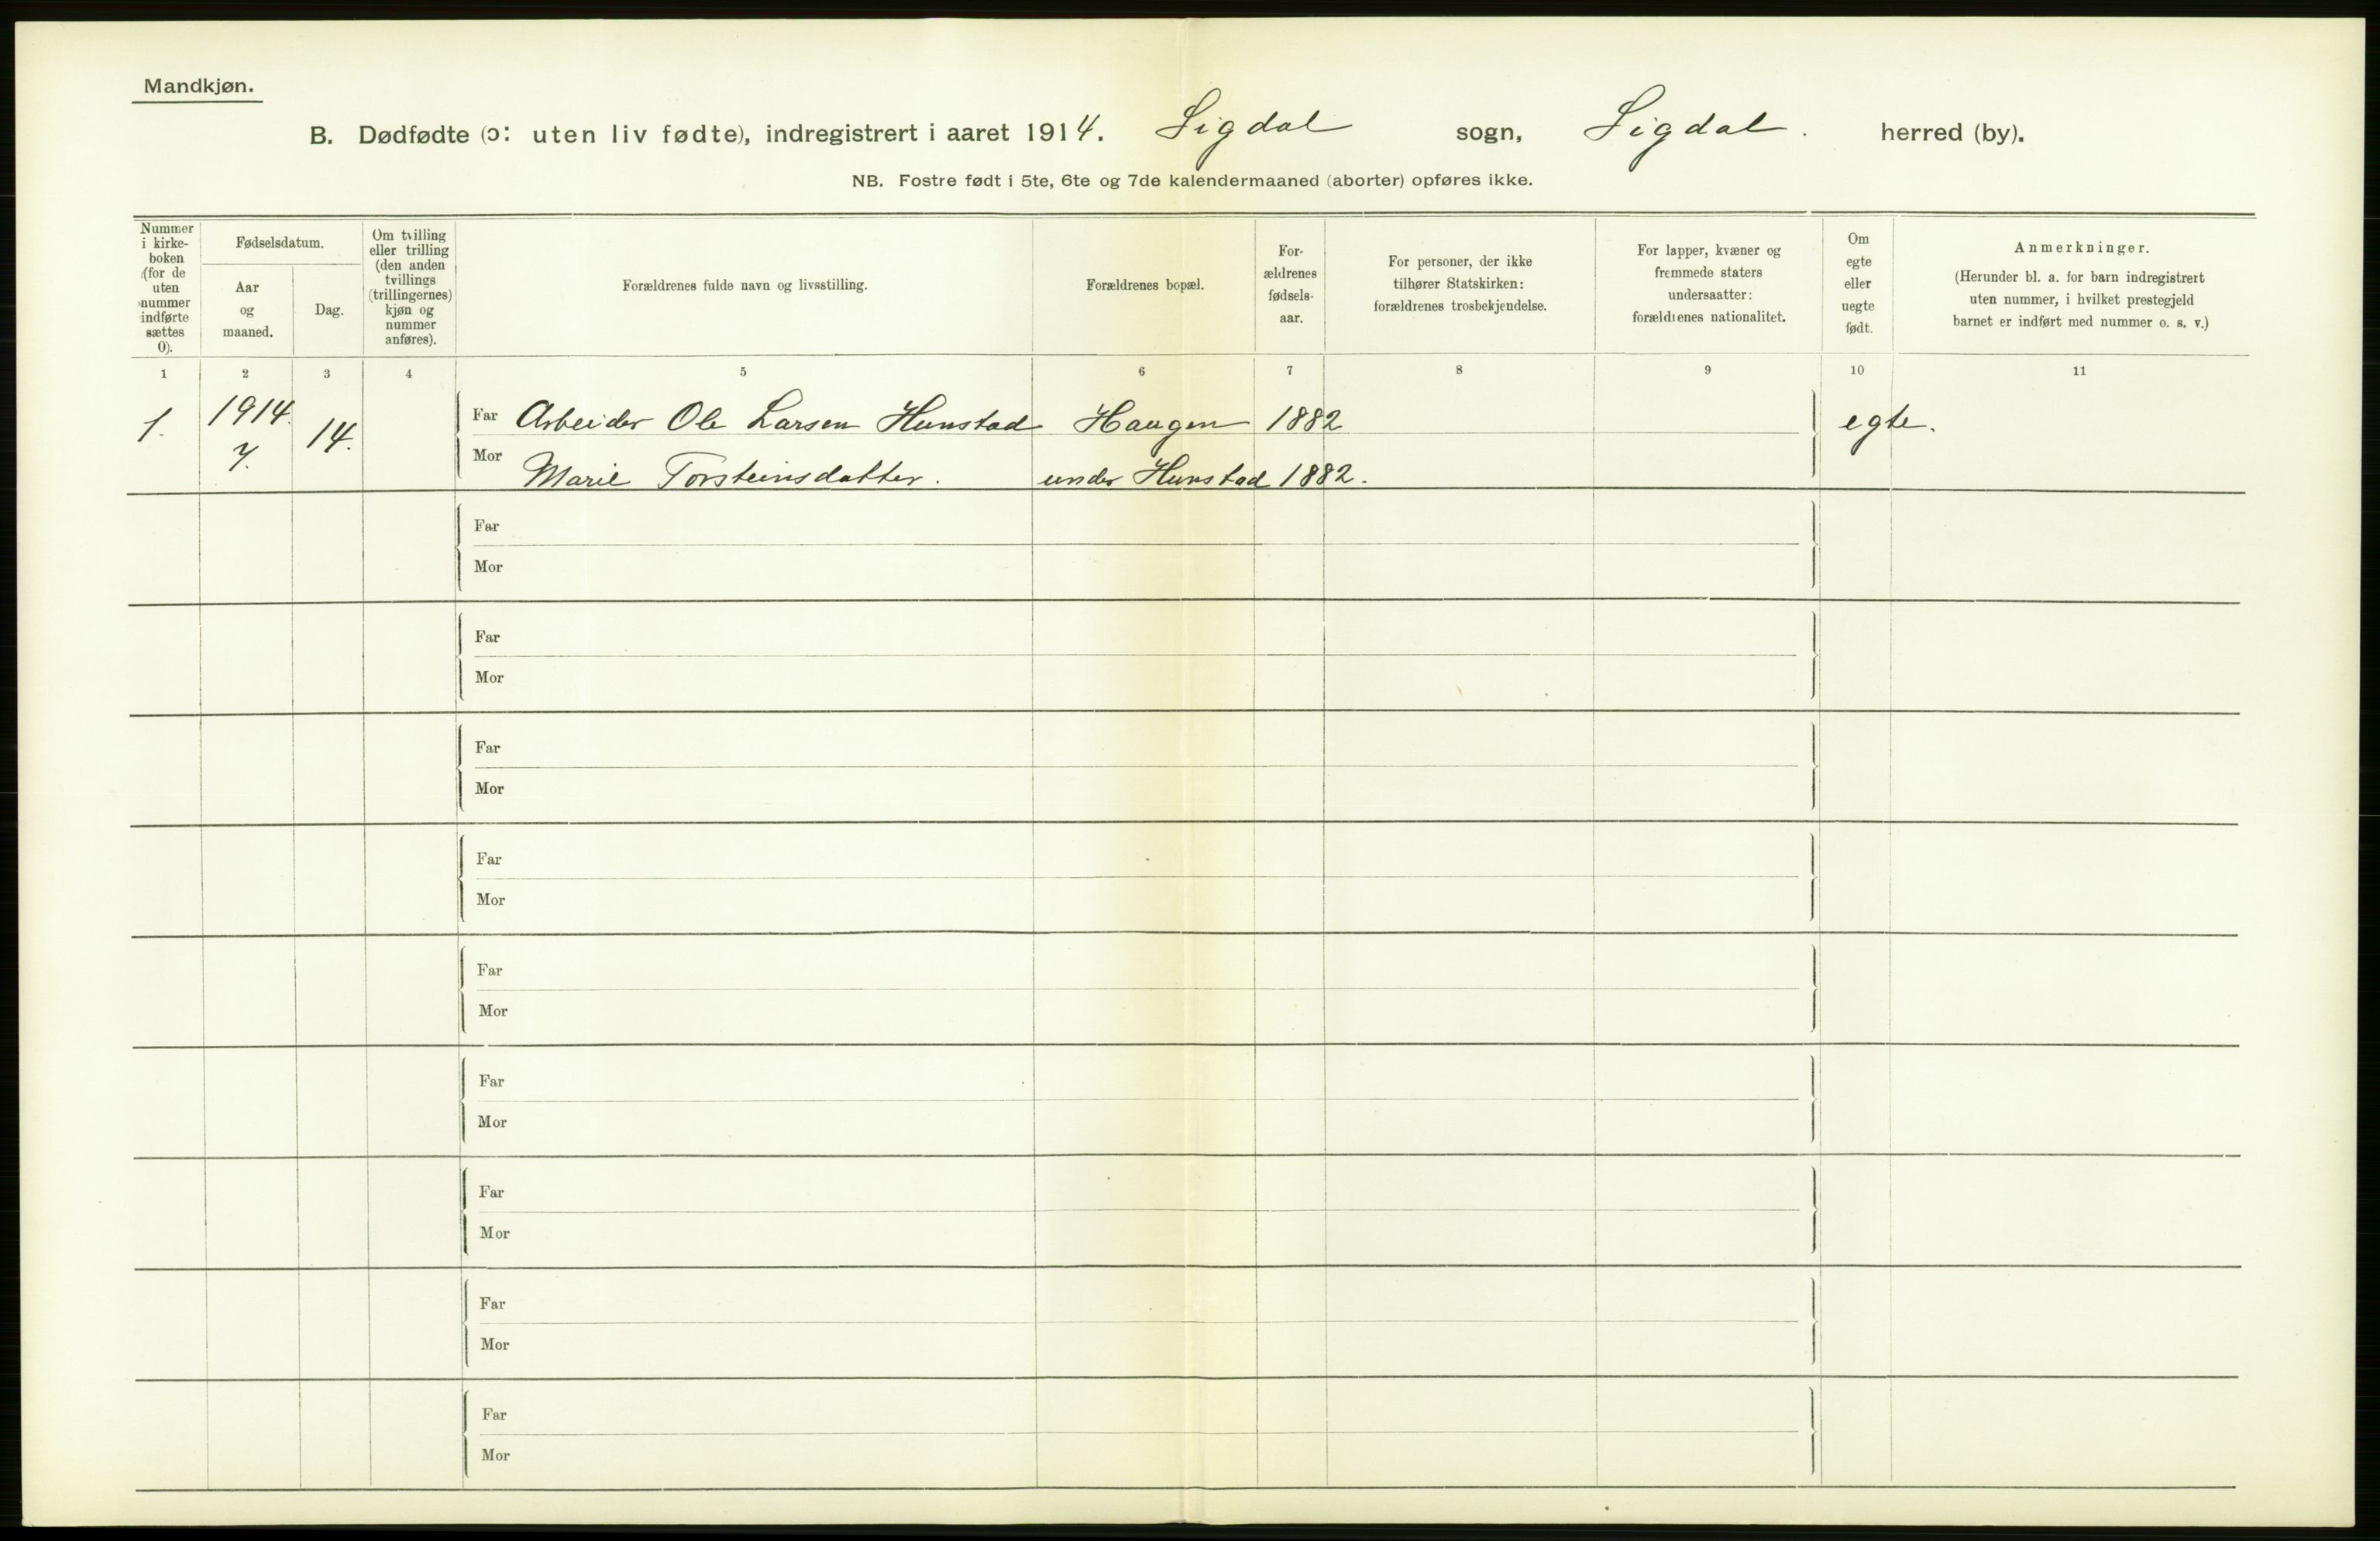 Mandkjøn.
B. Dødfødte (ɔ: uten liv fødte), indregistrert i aaret 1914. Sigdal sogn, Sigdal. herred (by).
NB. Fostre født i 5te, 6te og 7de kalendermaaned (aborter) opføres ikke.
Nummer i kirke-
boken
(for de
uten
nummer
indførte
sættes
0).
Fødselsdatum.
Aar
og
maaned.
Dag.
Om tvilling
eller trilling
(den anden
tvillings
(trillingernes)
kjøn og
nummer
anføres).
Forældrenes fulde navn og livsstilling.
Forældrenes bopæl.
For-
ældrenes
fødsels-
aar.
For personer, der ikke
tilhører Statskirken:
forældrenes trosbekjendelse.
For lapper, kvæner og
fremmede staters
undersaatter:
forældrenes nationalitet.
Om
egte
eller
uegte
født.
Anmerkninger.
(Herunder bl. a. for barn indregistrert
uten nummer, i hvilket prestegjeld
barnet er indført med nummer o. s. v.)
1 2 3 4 5 6 7 8 9 10 11
1. 1914. 14. Far Arbeider Ole Larsen Hunstad Haugen 1882 egte.
7. Mor Marie Torsteinsdatter. under Hunstad 1882.
Far
Mor
Far
Mor
Far
Mor
Far
Mor
Far
Mor
Far
Mor
Far
Mor
Far
Mor
Far
Mor